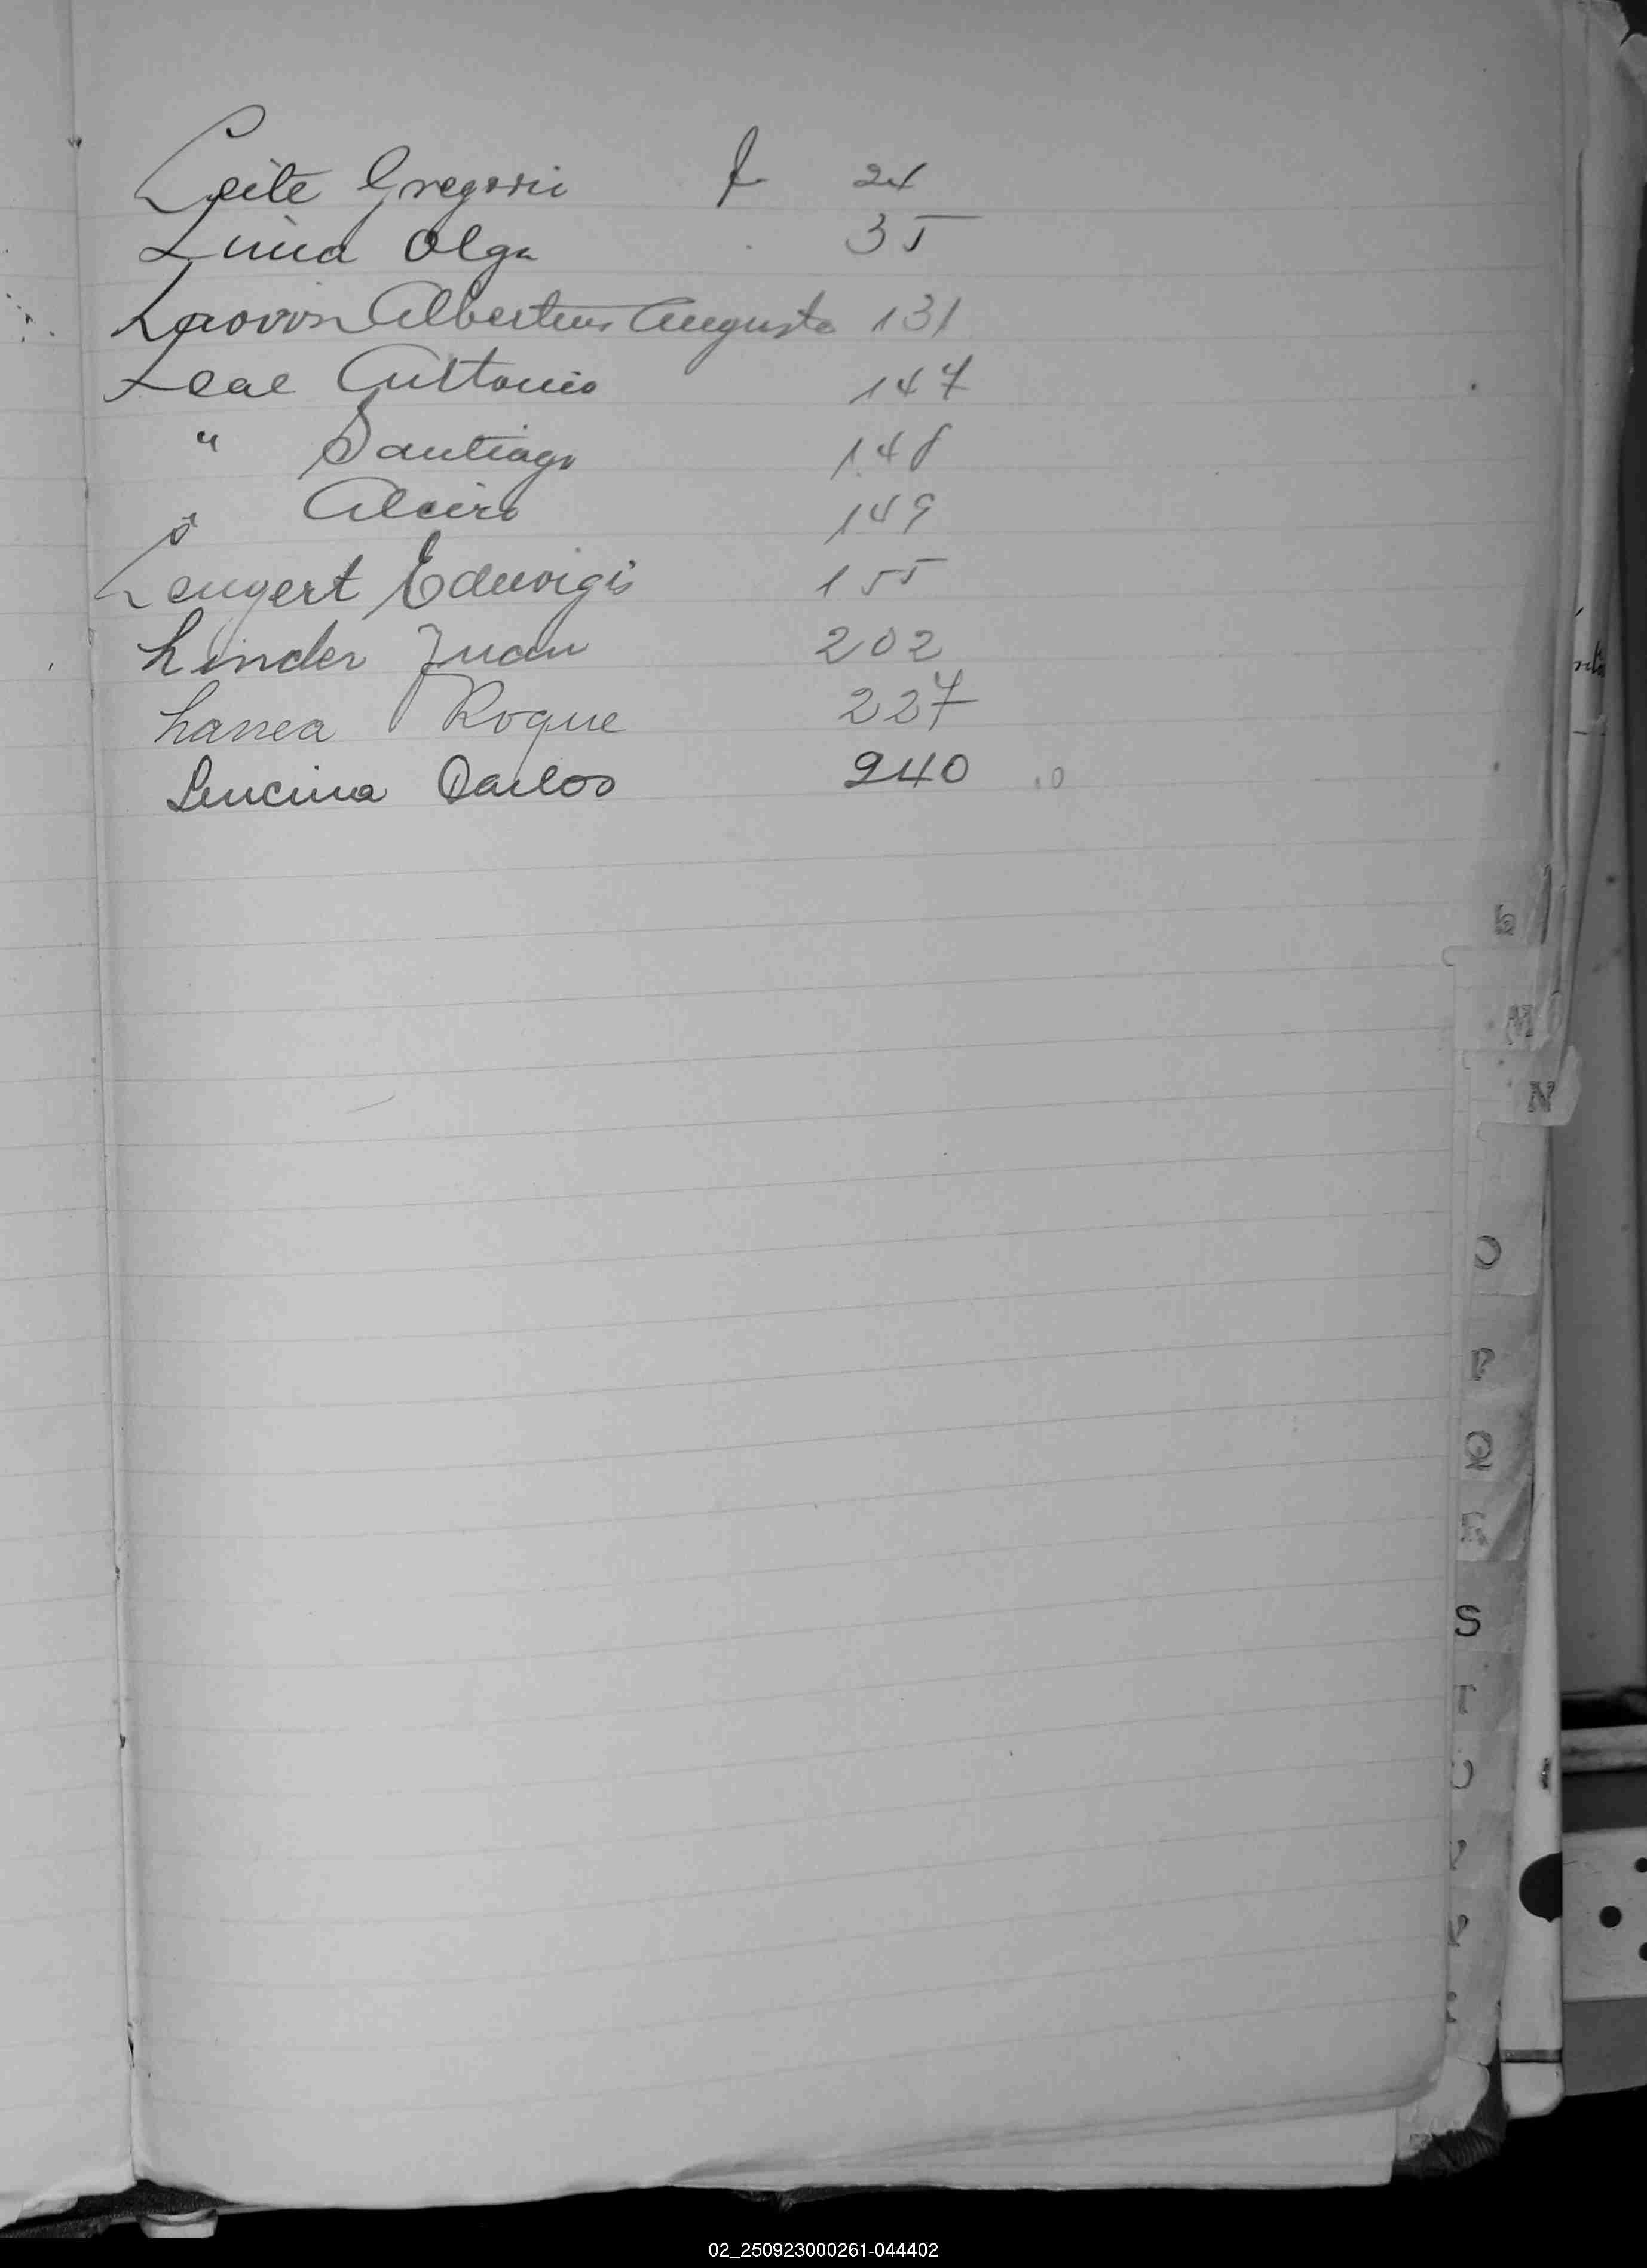 Leite Gregorio f 24
Luna Olga 35
Albertus Augusto 131
Leal Antonio 147
" Santiago 148
" Alcira 149
Leugert Eduvigis 155
Linder Juan 202
Larrea Roque 227
Lencina Carlos 240
L
M
N
O
P
Q
R
S
T
U
02_250923000261-044402